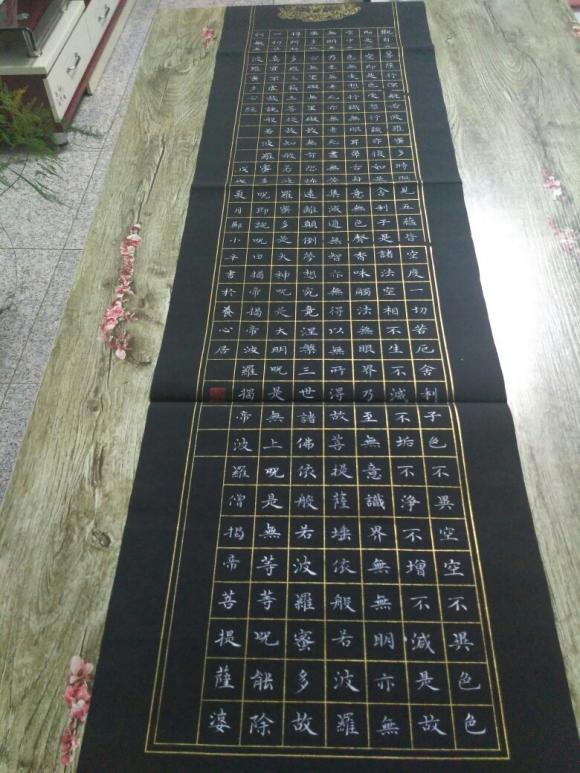 觀自在菩薩行深般若波羅蜜多時照見五蘊皆空度一切苦厄舍利子色不異空空不異色
即是空空即是色受想行識亦復如是舍利子是諸法空相不生不滅不垢不淨不增不減是故
空中無色無受想行識無眼耳鼻舌身意無色聲香味觸法無眼界乃至無意識界無無明亦無
無明盡乃至無老死亦無老死盡無苦集滅道無智亦無得以無所得故菩提薩埵依般若波羅
蜜多故心無罣礙無罣礙故無有恐怖遠離顛倒夢想究竟涅槃三世諸佛依般若波羅蜜多故
得阿耨多羅三藐三菩提故知般若波羅蜜多是大神呪是大明呪是無上呪是無等等呪能除
一切苦真實不虛故說般若波羅蜜多呪即說呪曰揭帝揭帝波羅揭帝波羅僧揭帝菩提薩婆
訶般若波羅蜜多心經
戊戌夏月鄭小平書於養心居